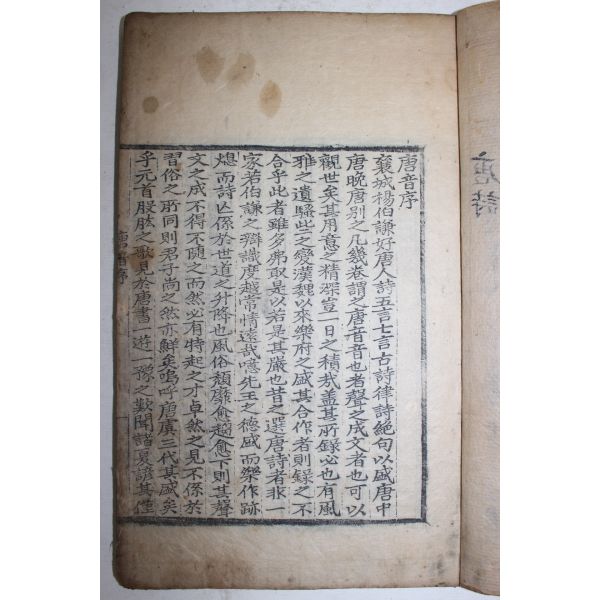 唐音序
襄城楊伯謙好唐人詩五言七言古詩律詩絶句以盛唐中
唐晚唐別之凡幾卷謂之唐音音也者聲之成文者也可以
觀世矣其用意之精深豈一日之積哉盖其所錄必也有風
雅之遺騷些之變漢魏以來樂府之盛其合作者則錄之不
合乎此者雖多弗取是以若是其嚴也昔之選唐詩者非一
家若伯謙之辯識度越常情遠哉噫先王之德盛而樂作跡
熄而詩亡係於世道之升降也風俗頹靡愈趨愈下則其聲
文之成不得不隨之而然必有特起之才卓然之見不係於
習俗之所同則君子尚之然亦鮮矣嗚呼唐虞三代其盛矣
乎元首股肱之歌見於唐書一遊一豫之歎聞諸夏諺其僅
唐音序